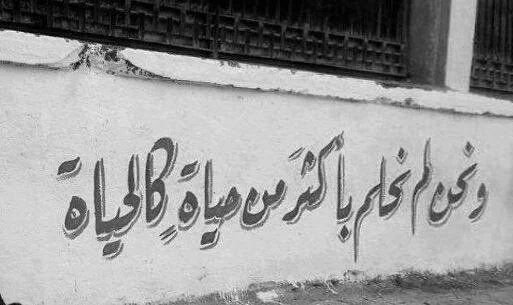 ونحن لم نحلم بأكثرَ من حياةٍ كالحياة